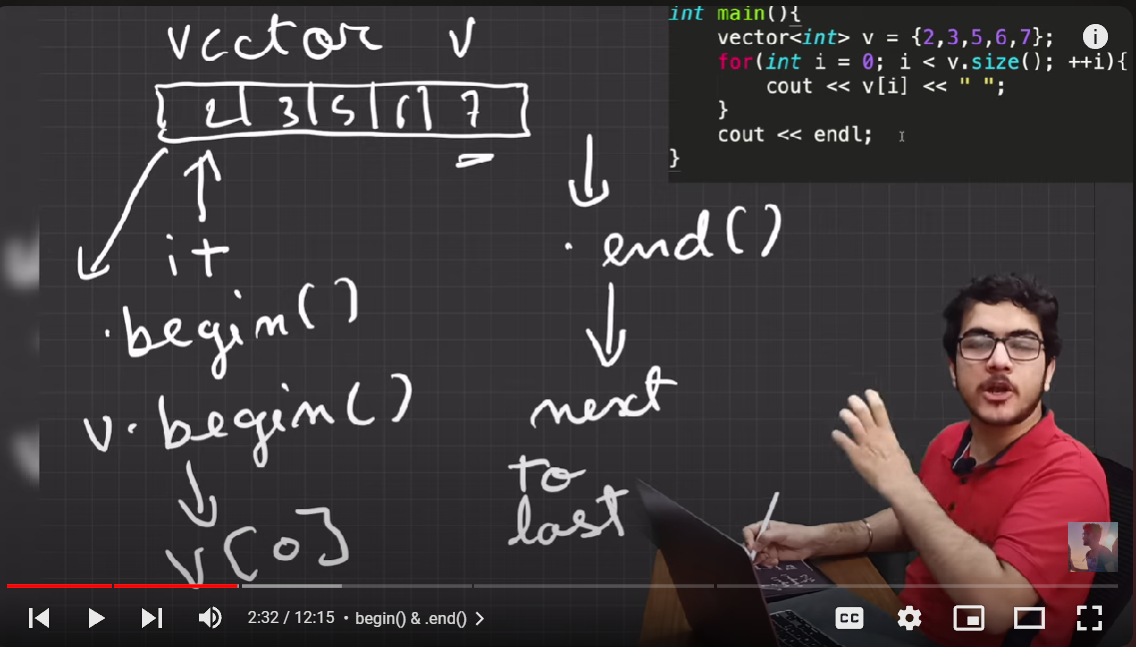 vector v
2 3 5 6 7
it
.begin()
v.begin()
v[0]
.end()
next
to
last
int main(){
vector<int> v = {2,3,5,6,7};
for(int i = 0; i < v.size(); ++i){
cout << v[i] << " ";
}
cout << endl;
}
i
2:32 / 12:15 • begin() & .end() >
CC